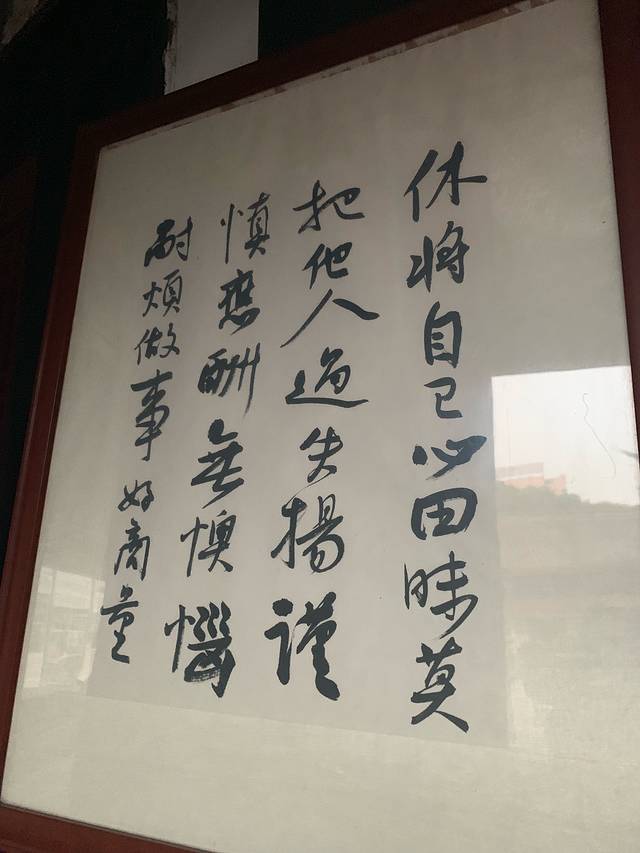 休将自己心田昧莫
把他人過失揚謹
慎應酬無懊惱
耐煩做事好商量